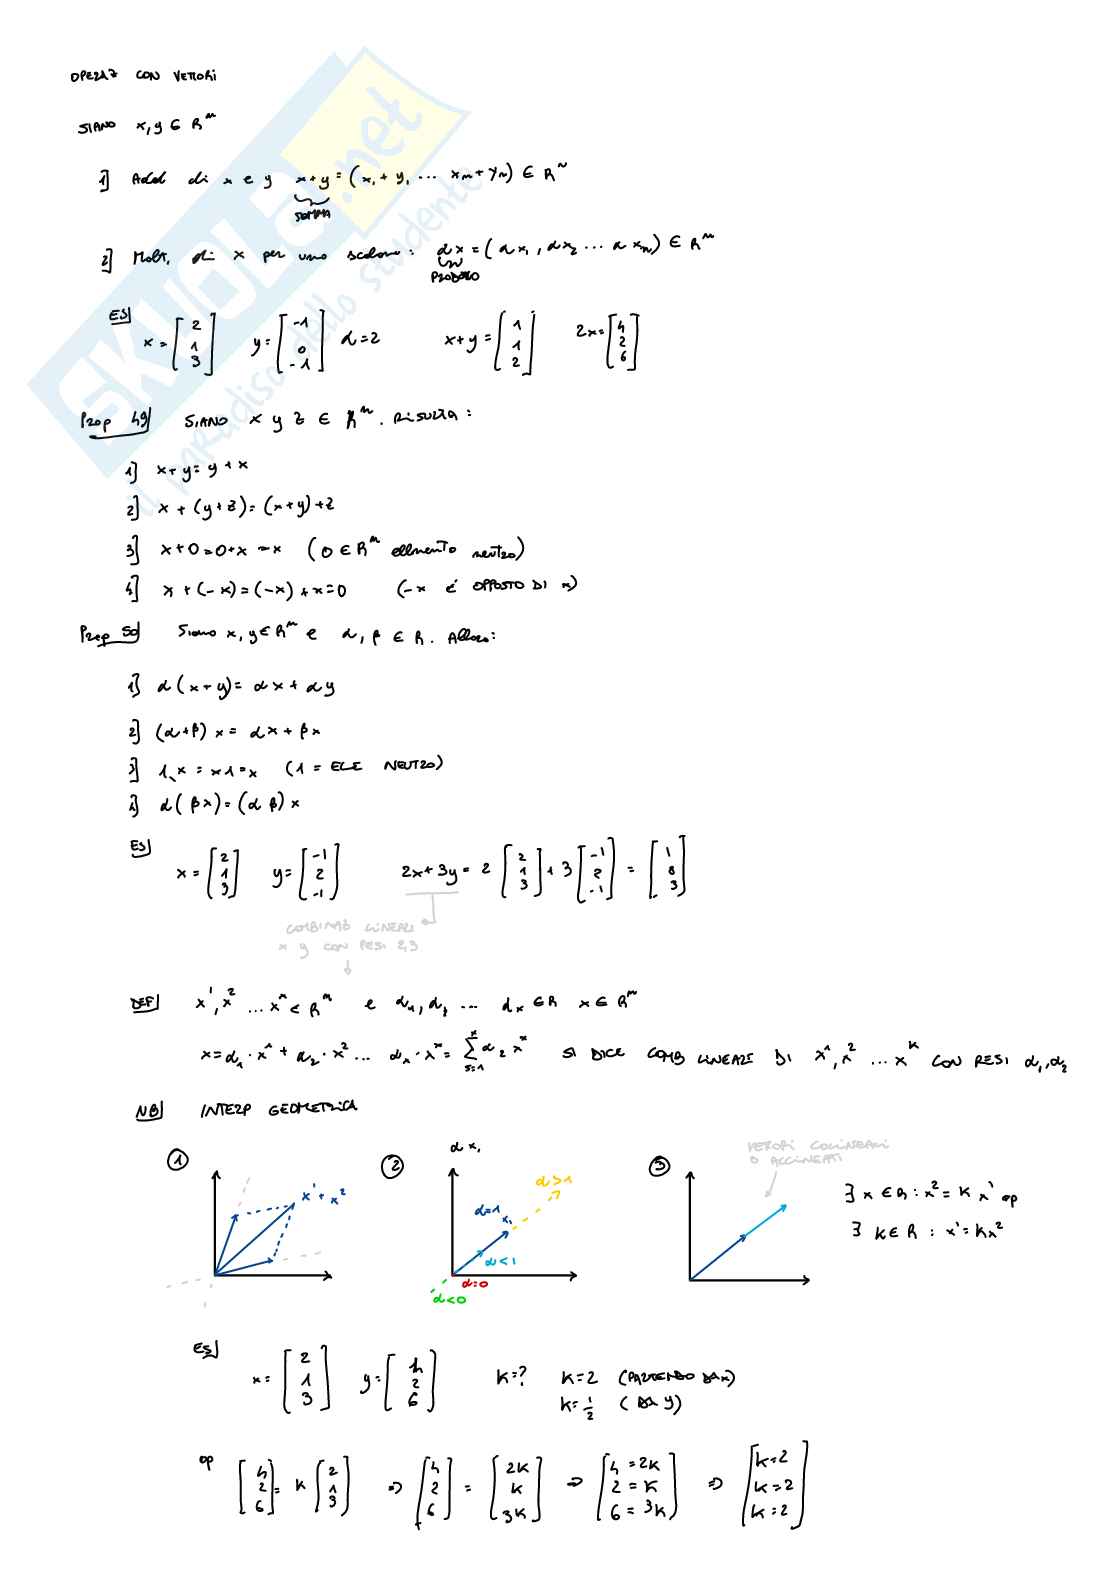 OPERAZ CON VETTORI
SIANO x, y ∈ Rⁿ
1] Add di x e y x+y = (x₁ + y₁ ... xₙ + yₙ) ∈ Rⁿ
SOMMA
2] Molt. di x per uno scalare: αx = (αx₁, αx₂ ... αxₙ) ∈ Rⁿ
PRODOTTO
ES] x = [2 1 3] y = [-1 0 -1] α=2 x+y = [1 1 2] 2x = [4 2 6]
Prop 49] SIANO x y z ∈ Rⁿ. RISULTA:
1] x+y = y+x
2] x + (y+z) = (x+y)+z
3] x+0 = 0+x = x (0 ∈ Rⁿ elemento neutro)
4] x + (-x) = (-x) + x = 0 (-x é OPPOSTO DI x)
Prop 50] Siano x, y ∈ Rⁿ e α, β ∈ R. Allora:
1] α(x+y) = αx + αy
2] (α+β) x = αx + βx
3] 1·x = x1 = x (1 = ELE NEUTRO)
4] α(βx) = (αβ) x
ES] x = [2 1 3] y = [-1 2 -1] 2x+3y = 2 [2 1 3] + 3 [-1 2 -1] = [1 8 3]
COMBINAZ LINEARE
x y CON PESI 2,3
DEF] x¹, x² ... xⁿ < Rⁿ e α₁, α₂ ... αₖ ∈ R x ∈ Rⁿ
x = α₁·x¹ + α₂·x² ... SI DICE COMB LINEARE DI x¹, x² ... xᵏ CON PESI α₁, α₂
NB] INTERP GEOMETRICA
① x¹ + x²
② αx₁
α>1
α=1
x₁
α<1
α=0
α<0
③ VETTORI COLLINEARI
O ALLINEATI
∃ k ∈ R : x² = k x¹ op
∃ k ∈ R : x¹ = kx²
ES] x = [2 1 3] y = [4 2 6] k=? k=2 (PARTENDO DA x)
k = 1/2 (DA y)
op [4 2 6] = k [2 1 3] => [4 2 6] = [2k k 3k] => [4=2k 2=k 6=3k] => [k=2 k=2 k=2]
SKUOLA.net
il paradiso dello studente